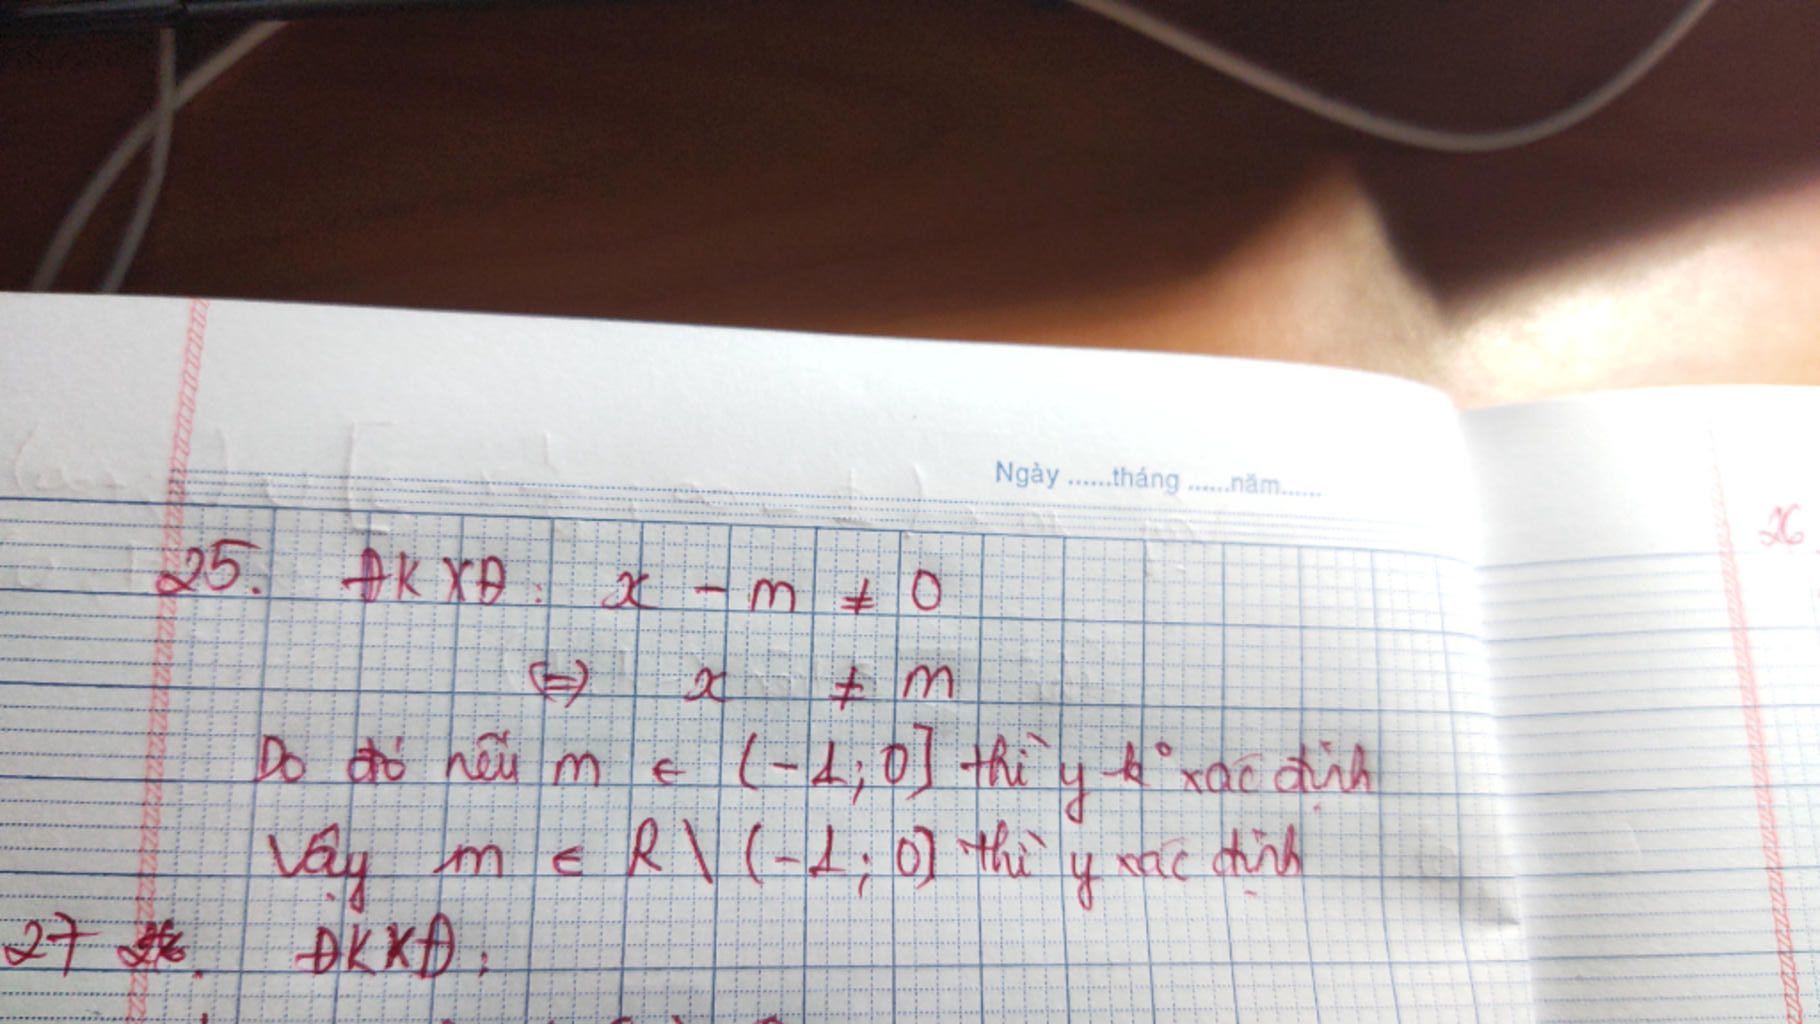 Ngày ......tháng ......năm......
26
25. ĐKXĐ: x - m ≠ 0
⇔ x ≠ m
Do đó nếu m ∈ (-1; 0] thì y k° xác định
Vậy m ∈ R \ (-1; 0] thì y xác định
27 ĐKXĐ: